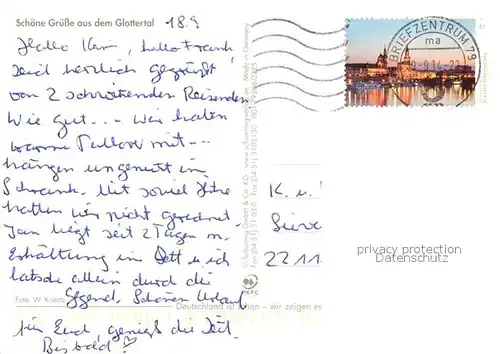 Schöne Grüße aus dem Glottertal 18.9
Hallo Kim, hallo Frank,
seid herzlich gegrüßt
von 2 schwitzenden Reisenden
Wie gut... Wir haben
warme Pullover mit --
hängen ungenutzt im
Schrank. Mit soviel Hitze
hatten wir nicht gerechnet
Jan liegt seit 2 Tagen m.
Erkältung im Bett u ich
latsche allein durch die
Gegend. Schönen Urlaub
für Euch, genießt die Zeit.
Bis bald
Foto: W. Krantz
Deutschland ist schön – wir zeigen es
© Schöning GmbH & Co. KG
Made in Germany
PEFC
BRIEFZENTRUM 79
ma
K. u.
22 11
privacy protection
DELCAMPE